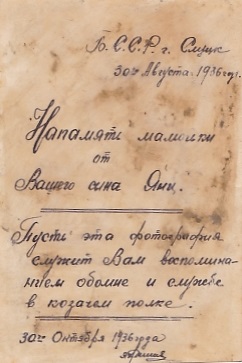 Б.С.С.Р. г. Слуцк
30го Августа 1936год.
Напамять мамошки
от
Вашего сина Яни.
Пусть эта фотография
служит Вам воспомина-
нием обомне и службе
в козачем полке.
30го Октября 1936года